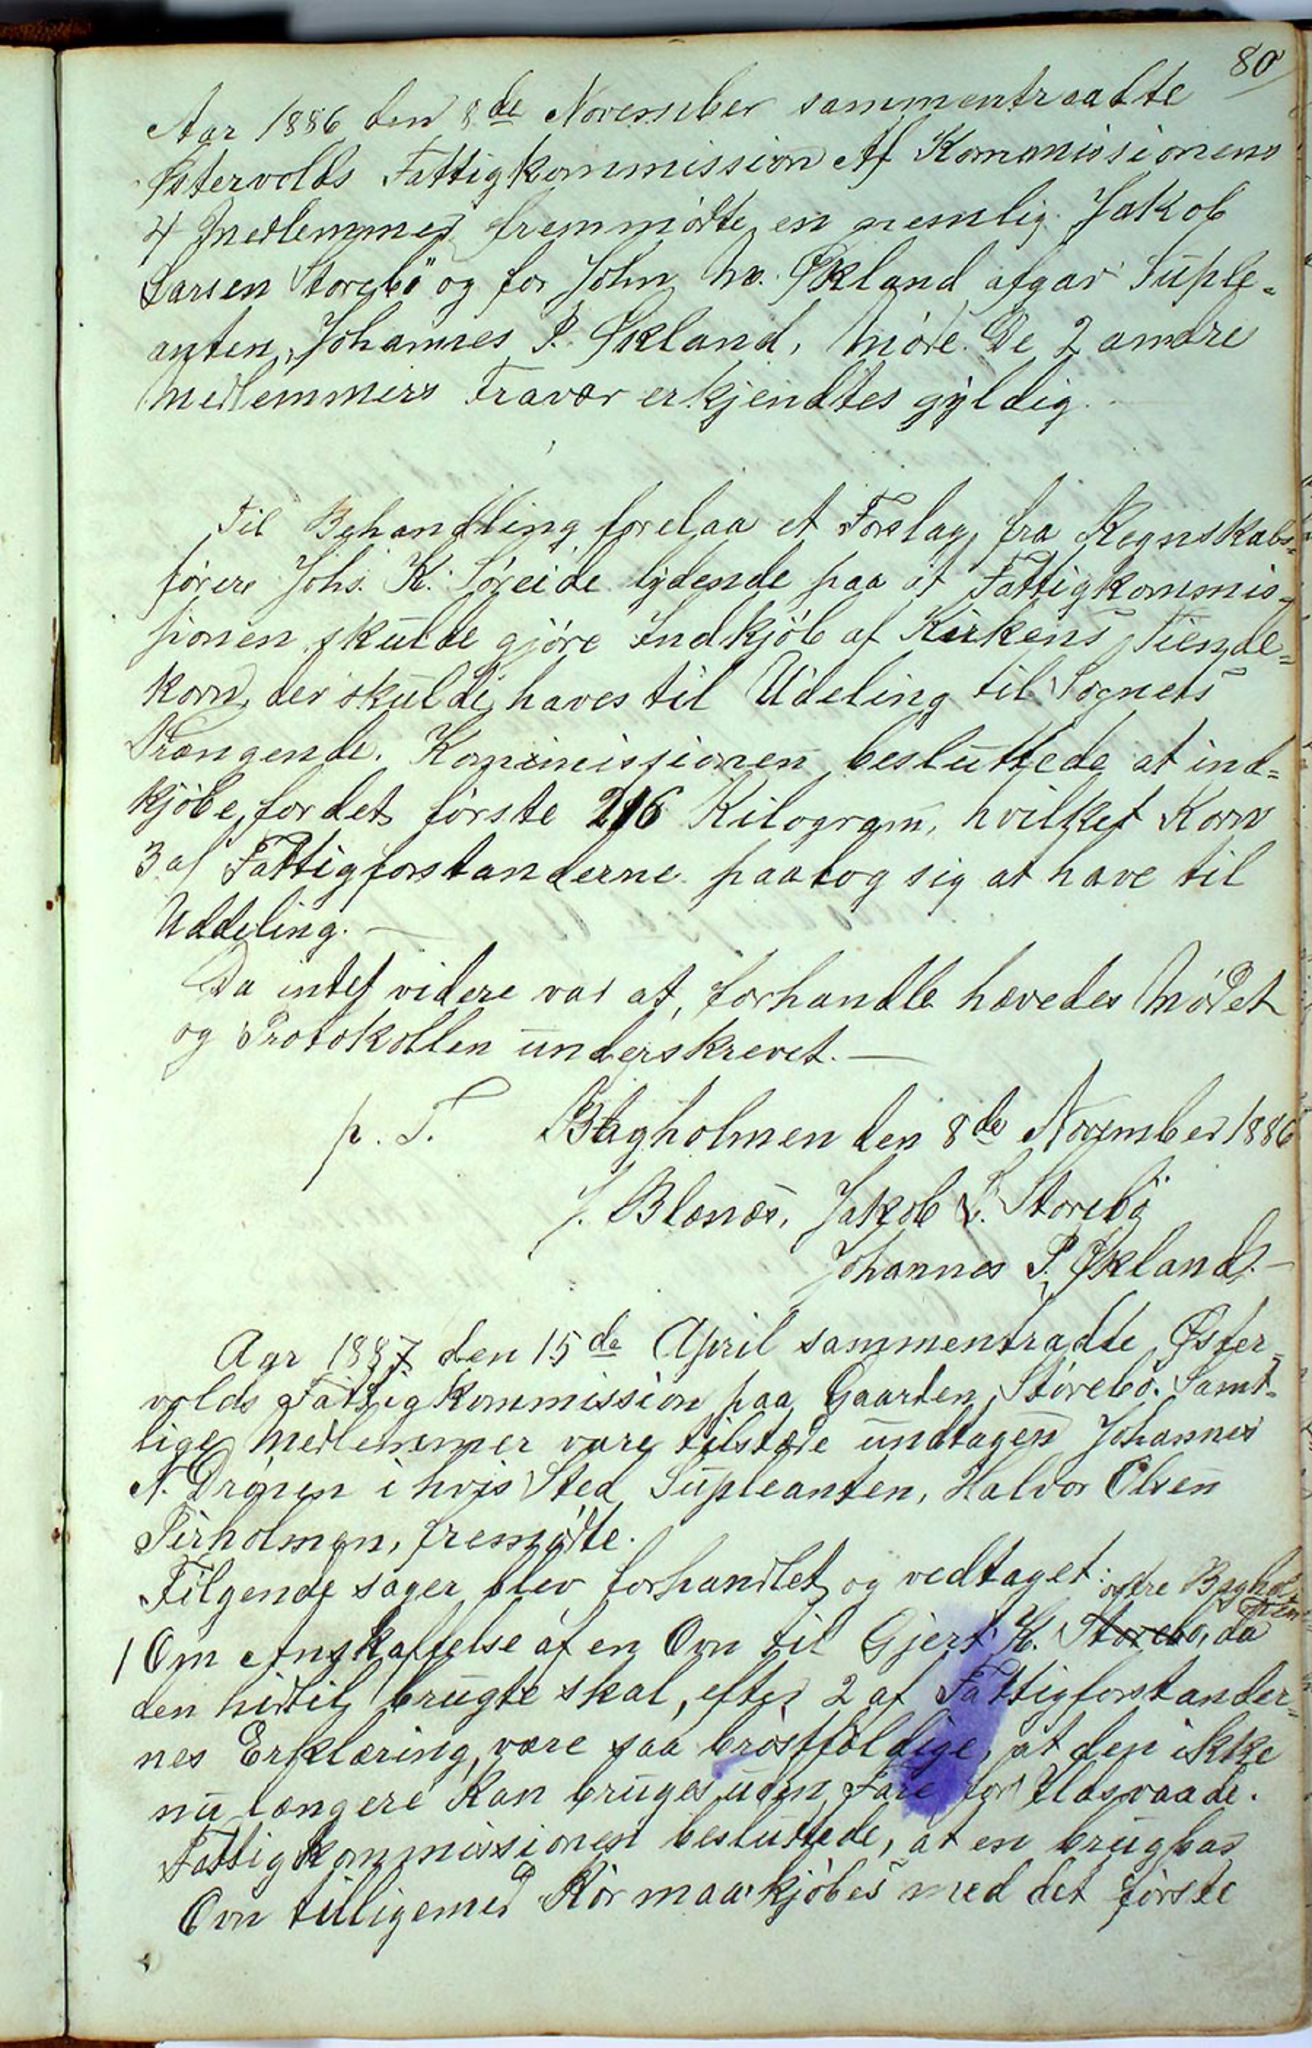 80
Aar 1886 den 8de November sammentraadte
Østervolds Fattigkommission Af Kommissionens
4 Medlemmer fremmødte en nemlig Jakob
Larsen Storebö og for John M. Økland afgav Suple-
anten, Johannes P. Økland, Møde. De 2 andre
Medlemmers Fravær erkjendtes gyldig.
Til Behandling forelaa et Forslag fra Regnskabs-
fører Johs. K. Søreide lydende paa at Fattigkommis-
sionen skulde gjøre Indkjøb af Kirkens Tiende-
korn, der skulde haves til Udeling til Sognets
Trængende. Kommissionen besluttede at ind-
kjøbe for det første 216 Kilogram, hvilket Korn
3 af Fattigforstanderne paatog sig at have til
Uddeling. —
Da intet videre var at forhandle hævedes Mødet
og Protokollen underskrevet. —
p. T. Bagholmen den 8de November 1886
J. Blænæs, Jakob L. Storebø
Johannes P. Økland. —
Aar 1887 den 15de April sammentradte Øster-
volds Fattigkommission paa Gaarden Storebø. Samt-
lige Medlemmer vare tilstede undtagen Johannes
N. Drønen i hvis Sted Supleanten, Halvor Olsen
Pirholmen, fremødte.
Følgende sager blev forhandlet og vedtaget:
østre Baghol-
men
1 Om Anskaffelse af en Ovn til Gjert K. Storebø, da
den hidtil brugte skal, efter 2 af Fattigforstander-
nes Erklæring, være saa brøstfældige, at den ikke
nu længere kan bruges uden Fare for Ildsvaade.
Fattigkommissionen besluttede, at en brugbar
Ovn tilligemed Rør maa kjøbes med det første